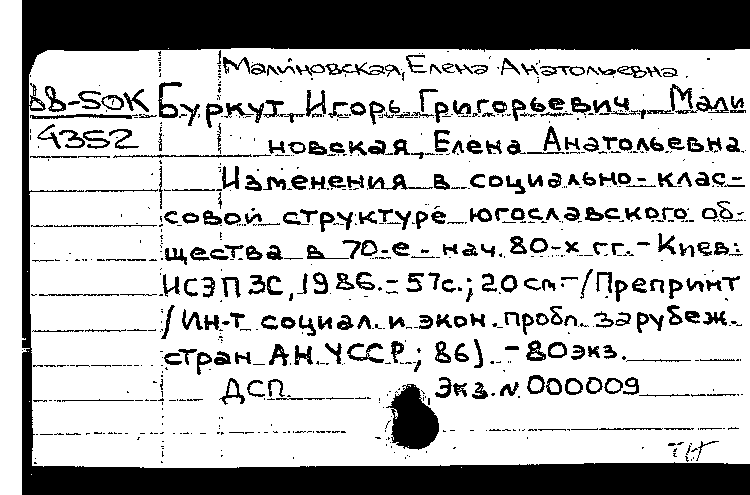 Малиновская, Елена Анатольевна
88-SOK Буркут, Игорь Григорьевич, Мали
4352 новская, Елена Анатольевна
Изменения в социально-клас-
совой структуре югославского об-
щества в 70-е - нач. 80-х гг. - Киев:
ИСЭПЗС, 1986. - 57с.; 20 см. - /Препринт
/Ин-т социал. и экон. пробл. зарубеж.
стран АН УССР; 86). - 80экз.
ДСП Экз. N 000009
ТН